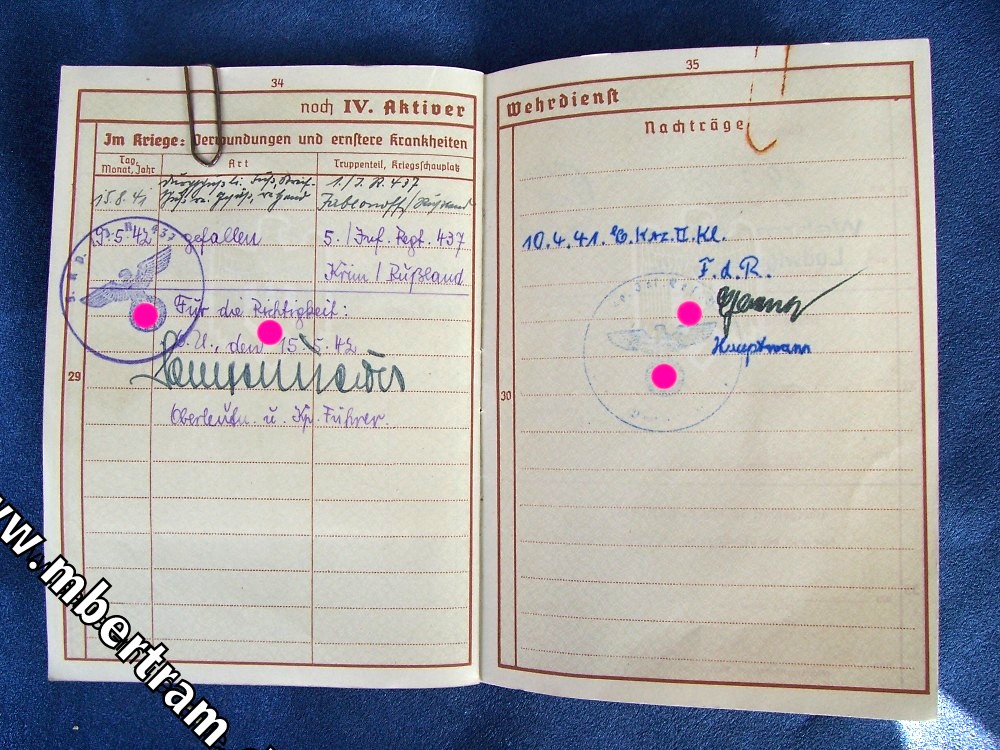 34
noch IV. Aktiver
Im Kriege: Verwundungen und ernstere Krankheiten
Tag, Monat, Jahr
Art
Truppenteil, Kriegsschauplatz
1./I.R. 437
15.8.41
9.5.42 gefallen 5./Inf. Regt. 437
Krim / Rußland
Für die Richtigkeit:
O.U., den 15.5.42
Oberleutn. u. Kp. Führer.
29
35
Wehrdienst
Nachträge
10.4.41. Kl.
F.d.R.
Hauptmann
30
www.mbertram